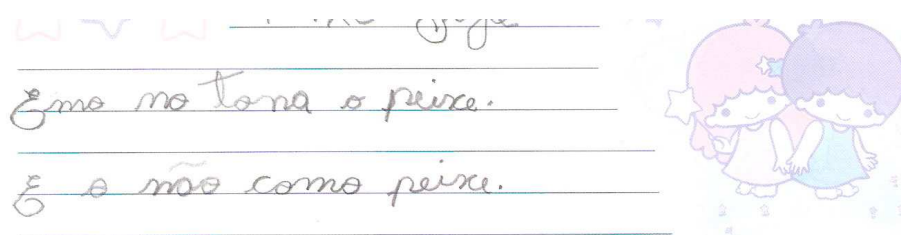 Emo no tona o peixe.
E o não como peixe.